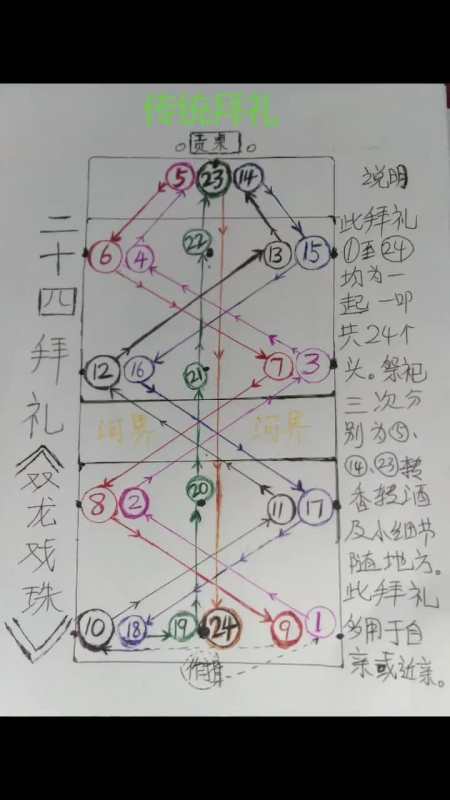 传统拜礼
贡桌
⑤ ㉓ ⑭
⑥ ④ ㉒ ⑬ ⑮
⑫ ⑯ ㉑ ⑦ ③
河界 河界
⑧ ② ⑳ ⑪ ⑰
⑩ ⑱ ⑲ ㉔ ⑨ ①
作揖
二十四拜礼《双龙戏珠》
说明
此拜礼
①至㉔
均为一
起一叩
共24个
头。祭祀
三次分
别为⑤、
⑭、㉓转
香报酒
及小细节
随地方。
此拜礼
多用于自
亲或近亲。